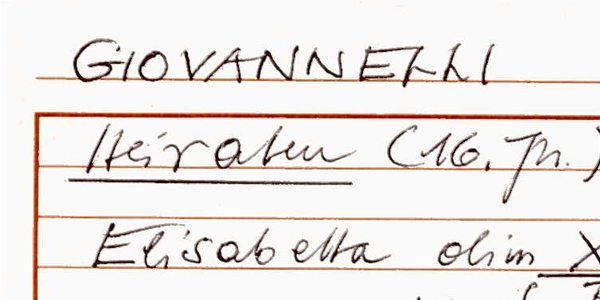 GIOVANNELLI
Heiraten (16. Jh.)
Elisabetta olim X